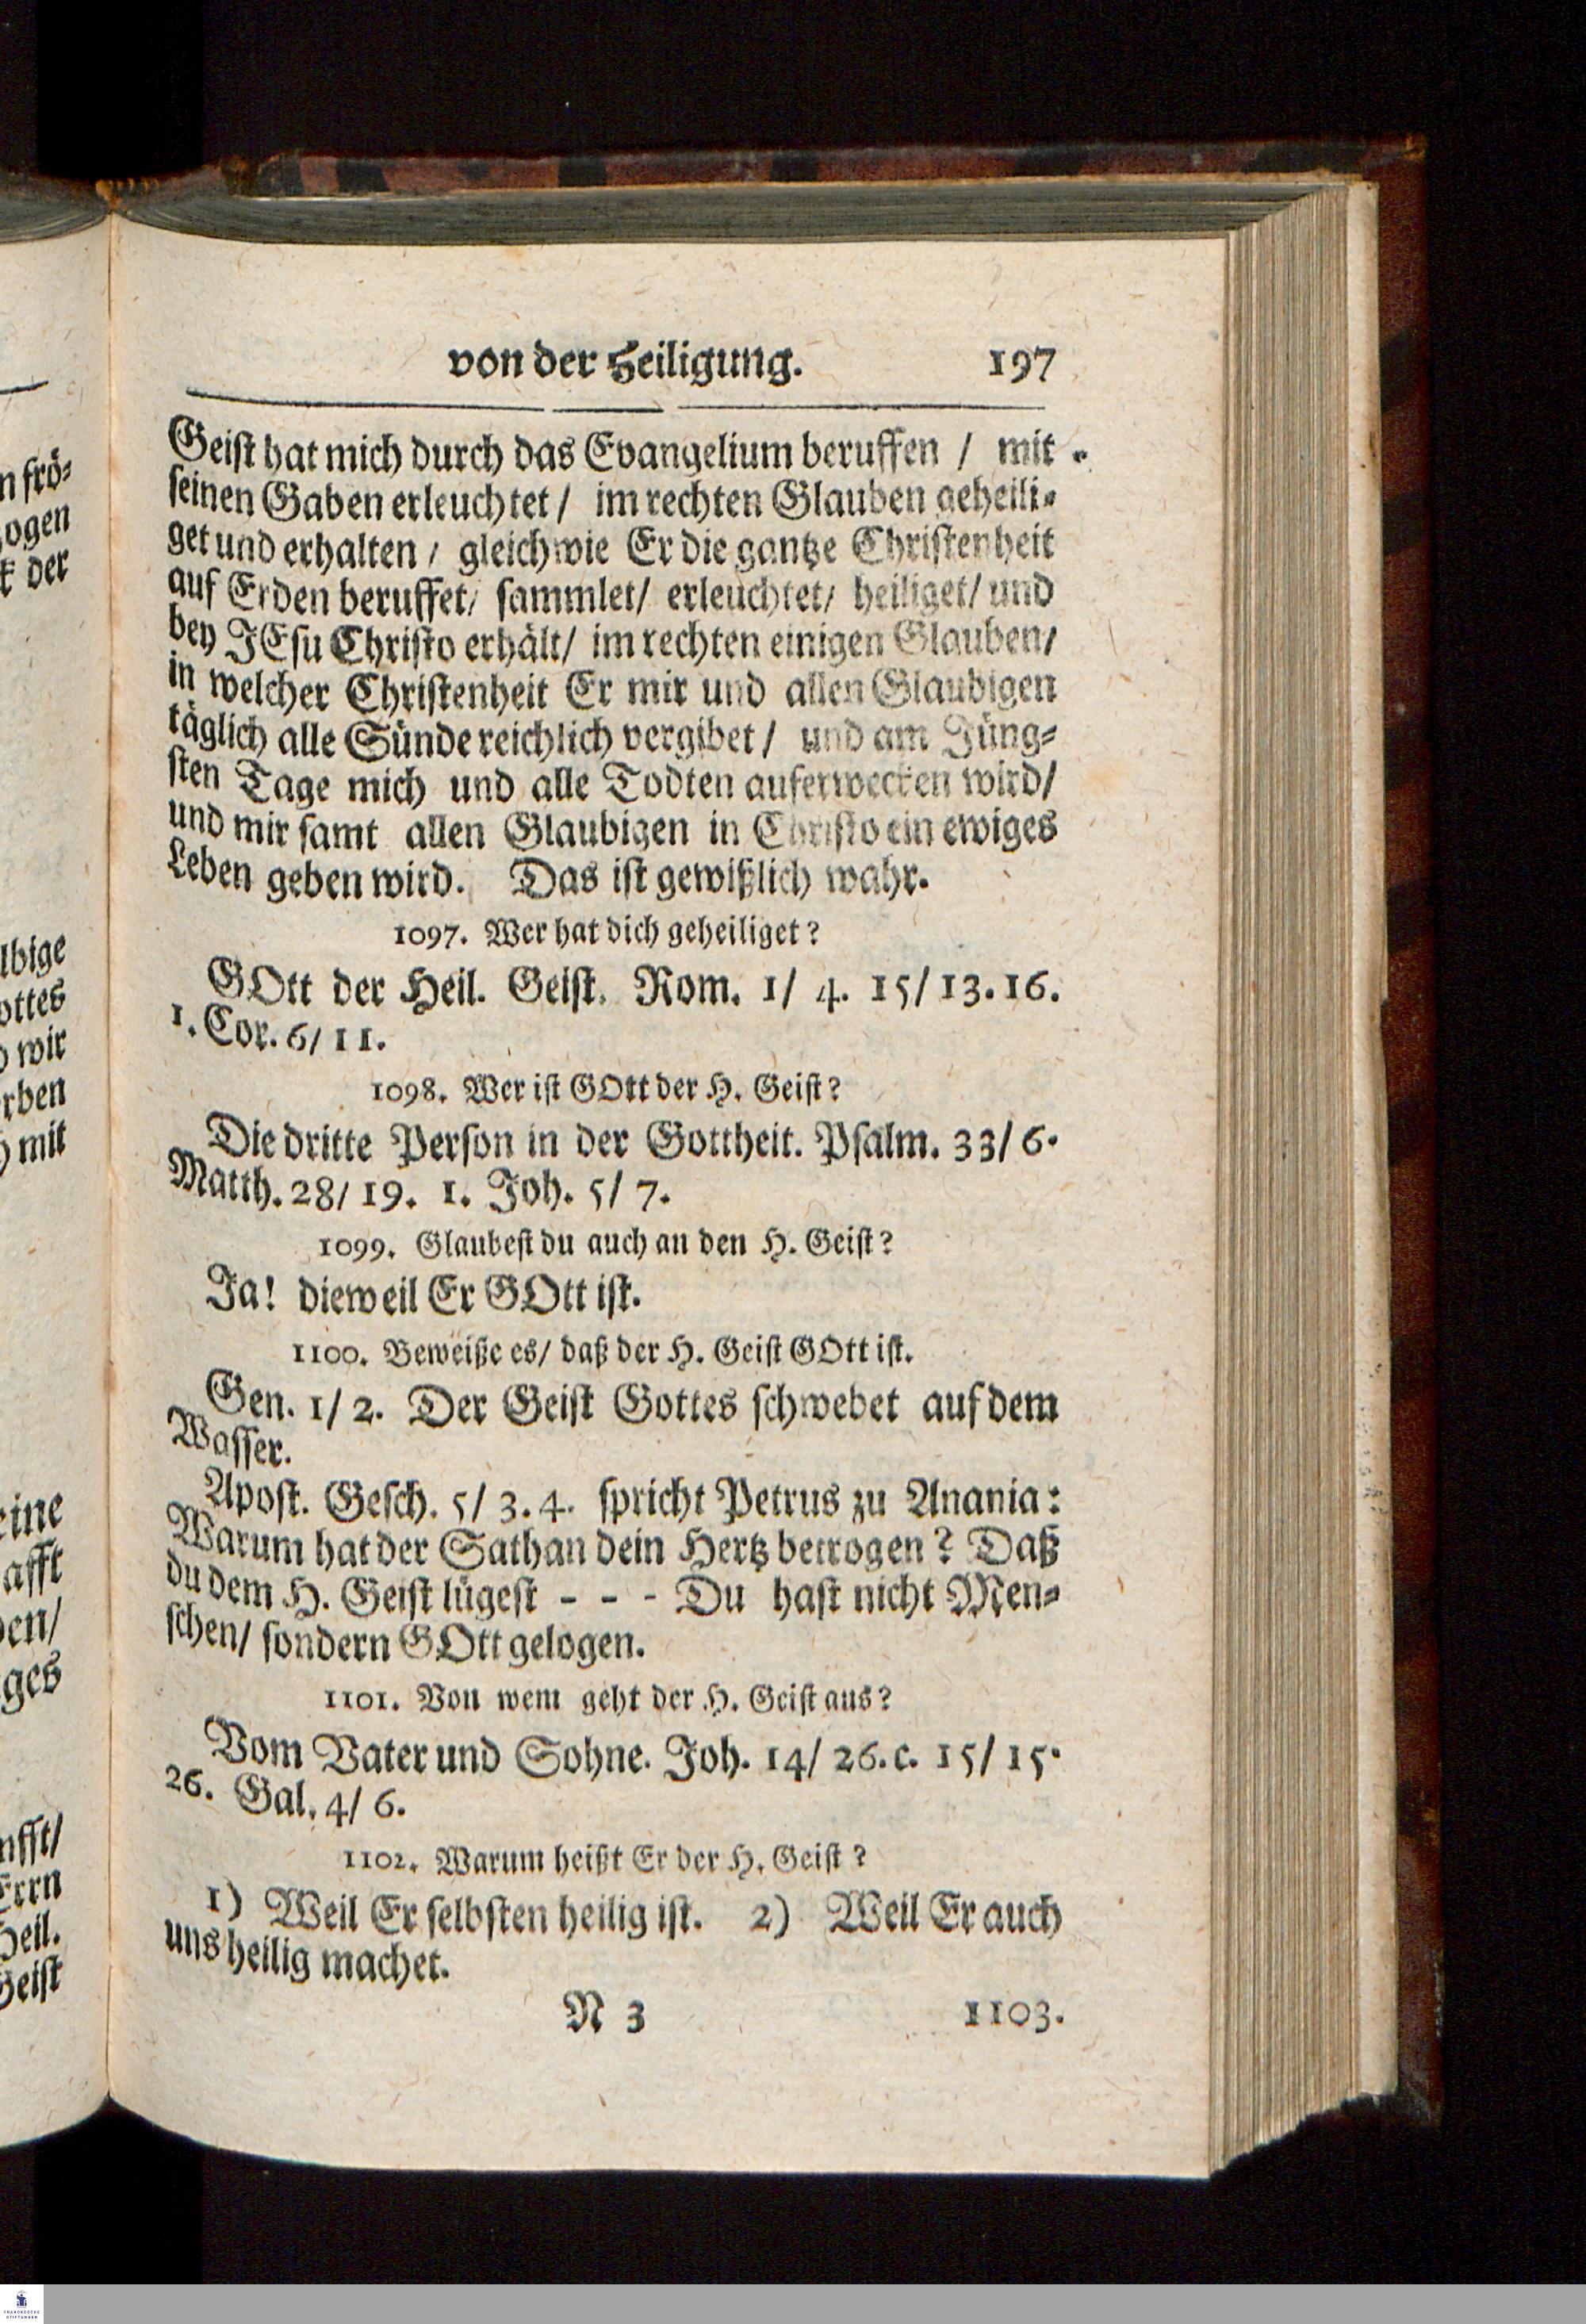 von der Heiligung. 197
Geist hat mich durch das Evangelium beruffen / mit
seinen Gaben erleuchtet / im rechten Glauben geheili-
get und erhalten / gleichwie Er die gantze Christenheit
auf Erden beruffet / sammlet / erleuchtet / heiliget / und
bey JEsu Christo erhält / im rechten einigen Glauben /
in welcher Christenheit Er mir und allen Glaubigen
täglich alle Sünde reichlich vergibet / und am Jüng-
sten Tage mich und alle Todten auferwecken wird /
und mir samt allen Glaubigen in Christo ein ewiges
Leben geben wird. Das ist gewißlich wahr.
1097. Wer hat dich geheiliget?
GOtt der Heil. Geist. Rom. 1/ 4. 15/ 13. 16.
1. Cor. 6/ 11.
1098. Wer ist GOtt der H. Geist?
Die dritte Person in der Gottheit. Psalm. 33/ 6.
Matth. 28/ 19. 1. Joh. 5/ 7.
1099. Glaubest du auch an den H. Geist?
Ja! dieweil Er GOtt ist.
1100. Beweiße es / daß der H. Geist GOtt ist.
Gen. 1/ 2. Der Geist Gottes schwebet auf dem
Wasser.
Apost. Gesch. 5/ 3. 4. spricht Petrus zu Anania:
Warum hat der Sathan dein Hertz betrogen? Daß
du dem H. Geist lügest - - - Du hast nicht Men-
schen / sondern GOtt gelogen.
1101. Von wem geht der H. Geist aus?
Vom Vater und Sohne. Joh. 14/ 26. c. 15/ 15.
26. Gal. 4/ 6.
1102. Warum heißt Er der H. Geist?
1) Weil Er selbsten heilig ist. 2) Weil Er auch
uns heilig machet.
N 3 1103.